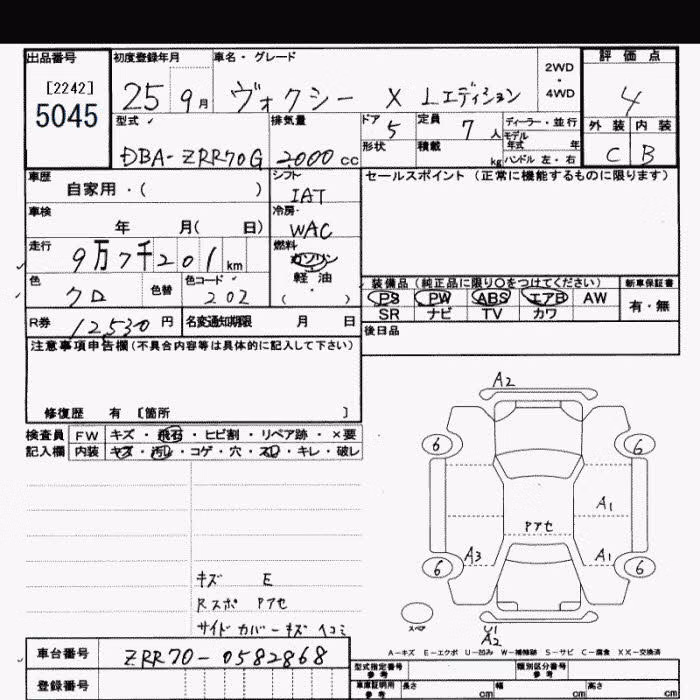 出品番号 初度登録年月 車名・グレード 2WD・4WD 評価点
[2242]
5045
25 9月 ヴォクシー X Lエディション 4
型式 排気量 ドア 定員 ディーラー・並行 外装 内装
DBA-ZRR70G 2000cc 5 7人 モデル年式 年 C B
形状 積載 kg ハンドル 左・右
車歴 シフト セールスポイント (正常に機能するものに限ります)
自家用・( ) IAT
車検 冷房
年 月( 日) WAC
走行 燃料
9万7千201km ガソリン
軽油
色 色替 色コード 装備品 (純正品に限り〇をつけてください) 新車保証書
クロ 202 ( ) PS PW ABS エアB AW 有・無
SR ナビ TV カワ
R券 12530円 名変通知期限 月 日 後日品
注意事項申告欄(不具合内容等は具体的に記入して下さい)
修復歴 有 [箇所 ]
検査員 FW キズ・飛石・ヒビ割・リペア跡・×要
記入欄 内装 キズ・汚レ・コゲ・穴・スレ・キレ・破レ
A2
6 6
A1
Pアセ
A3 A1
6 6
キズ E
Rスポ Pアセ
サイドカバーキズ ヘコミ
スペア
U1
A2
A-キズ E-エクボ U-凹み W-補修跡 S-サビ C-腐食 XX-交換済
車台番号 ZRR70-0582868
登録番号
型式指定番号 参考 類別区分番号 参考
車庫証明用 参考 長さ cm 幅 cm 高さ cm